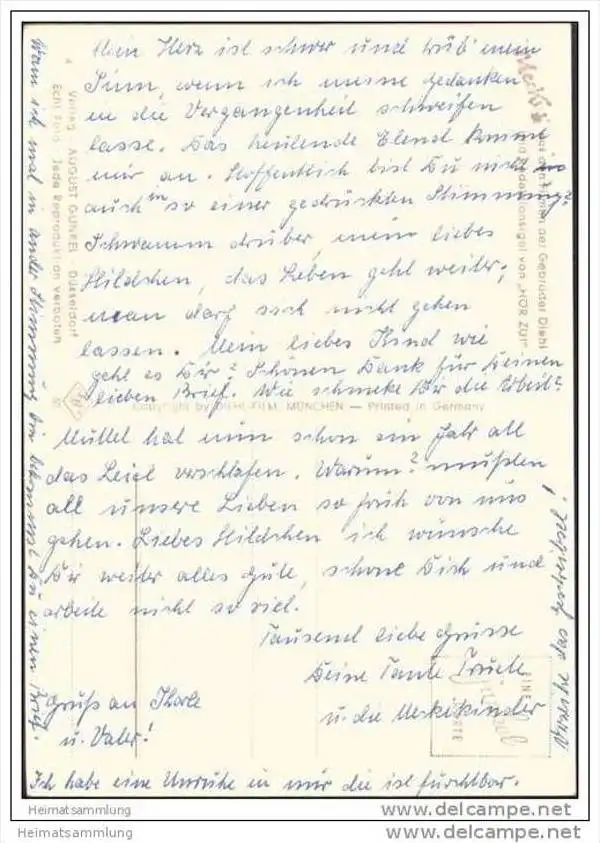 Mein Herz ist schwer und trüb mein
Sinn, wenn ich meine Gedanken
in die Vergangenheit schweifen
lasse. Das heulende Elend kommt
mir an. Hoffentlich bist Du nicht
auch in so einer gedrückten Stimmung?
Schwamm drüber, mein liebes
Hildchen, das Leben geht weiter,
man darf sich nicht gehen
lassen. Mein liebes Kind wie
geht es Dir? Schönen Dank für Deinen
lieben Brief. Wie schmekt Dir die Arbeit?
Mutter hat nun schon ein Jahr all
das Leid verschlafen. Warum? mußten
all unsere Lieben so früh von uns
gehen. Liebes Hildchen ich wünsche
Dir weiter alles Gute, schone Dich und
arbeite nicht so viel.
Tausend liebe Grüsse
Deine Tante Trude
u. die Mekikinder
Gruß an
u. Vater!
Ich habe eine Unruhe in mir die ist furchtbar.
Wann ich mal in ander Stimmung bin bekommst Du einen Brief.
Verzeihe das Geschreibsel!
Verlag AUGUST GUNKEL Düsseldorf
Echt Foto Jede Reproduktion verboten
Copyright by DIEHL-FILM, MÜNCHEN — Printed in Germany
der Gebrüder Diehl
Redaktionsigel von „HÖR ZU!"
Heimatsammlung
Heimatsammlung
www.delcampe.net
www.delcampe.net